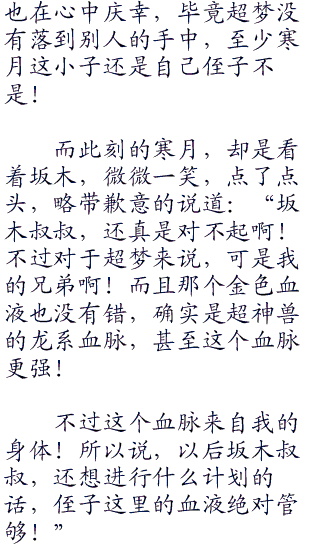 也在心中庆幸，毕竟超梦没
有落到别人的手中，至少寒
月这小子还是自己侄子不
是！
而此刻的寒月，却是看
着坂木，微微一笑，点了点
头，略带歉意的说道：“坂
木叔叔，还真是对不起啊！
不过对于超梦来说，可是我
的兄弟啊！而且那个金色血
液也没有错，确实是超神兽
的龙系血脉，甚至这个血脉
更强！
不过这个血脉来自我的
身体！所以说，以后坂木叔
叔，还想进行什么计划的
话，侄子这里的血液绝对管
够！”